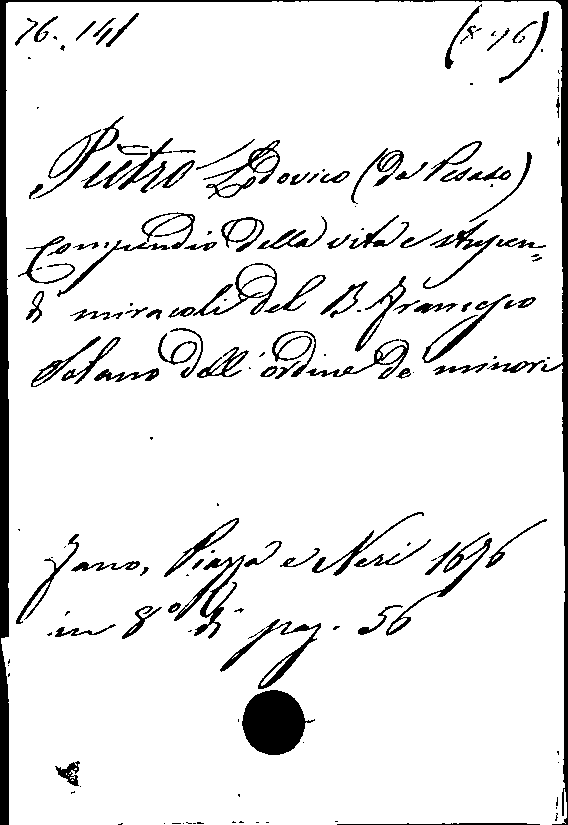 76. 141
(896)
Pietro Lodovico (da Pesaro)
Compendio della vita e stupen=
di miracoli del B. Francesco
Solano dell' ordine de minori
Fano, Piazza e Neri 1676
in 8º di pag. 56